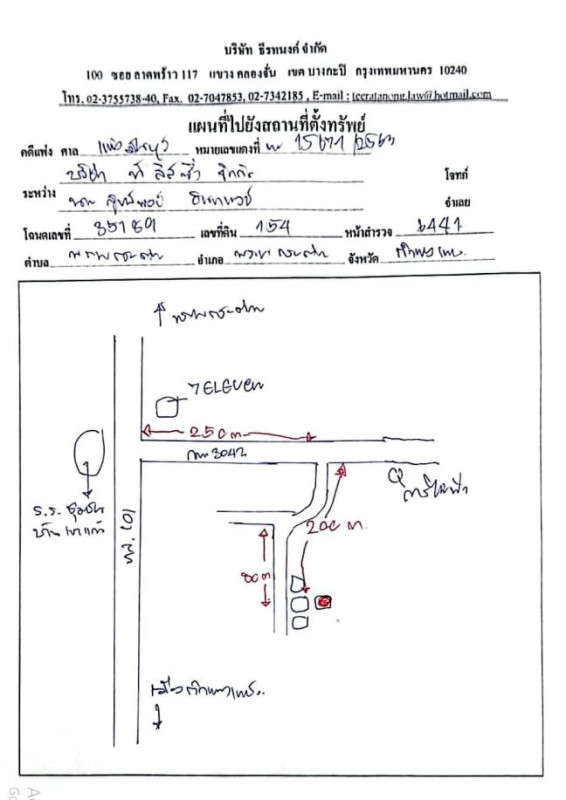 บริษัท ธีรทนงค์ จำกัด
100 ซอย ลาดพร้าว 117 แขวง คลองจั่น เขต บางกะปิ กรุงเทพมหานคร 10240
โทร. 02-3755738-40, Fax. 02-7047853, 02-7342185 , E-mail : teeratanong.law@hotmail.com
แผนที่ไปยังสถานที่ตั้งทรัพย์
คดีแพ่ง ศาล หมายเลขแดงที่ 15671/2563
บริษัท โจทก์
ระหว่าง
จำเลย
โฉนดเลขที่ 35189 เลขที่ดิน 154 หน้าสำรวจ 6441
ตำบล พรานกระต่าย อำเภอ พรานกระต่าย จังหวัด กำแพงเพชร
↑ พรานกระต่าย
7 ELEVEN
250 m
3042
การไฟฟ้า
ร.ร. ชุมชน
บ้านเขาแก้ว
ทล. 101
200 m.
80 m
เมืองกำแพงเพชร